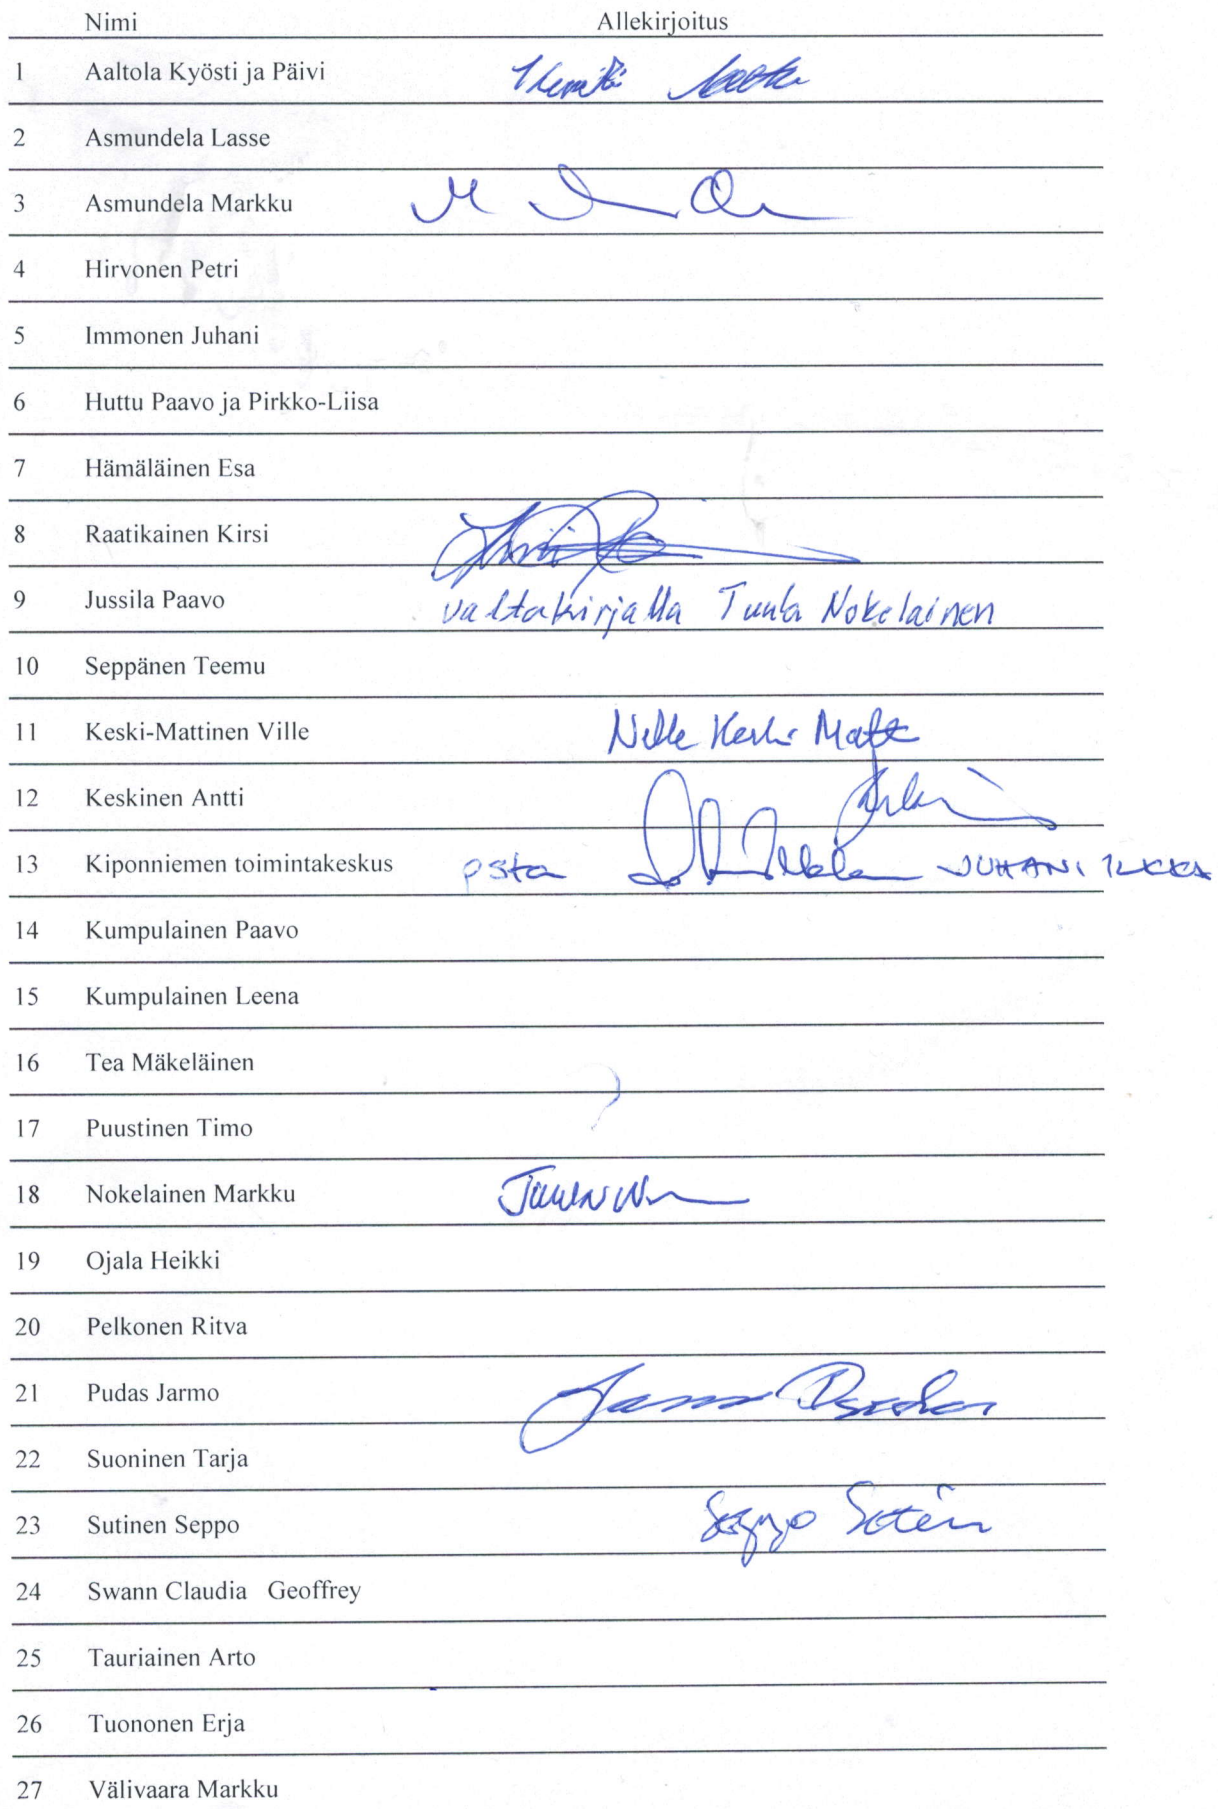 Nimi Allekirjoitus
1 Aaltola Kyösti ja Päivi
2 Asmundela Lasse
3 Asmundela Markku M
4 Hirvonen Petri
5 Immonen Juhani
6 Huttu Paavo ja Pirkko-Liisa
7 Hämäläinen Esa
8 Raatikainen Kirsi
9 Jussila Paavo valtakirjalla Tuula Nokelainen
10 Seppänen Teemu
11 Keski-Mattinen Ville
12 Keskinen Antti
13 Kiponniemen toimintakeskus psta JUHANI ILKKA
14 Kumpulainen Paavo
15 Kumpulainen Leena
16 Tea Mäkeläinen
17 Puustinen Timo
18 Nokelainen Markku
19 Ojala Heikki
20 Pelkonen Ritva
21 Pudas Jarmo
22 Suoninen Tarja
23 Sutinen Seppo Seppo
24 Swann Claudia Geoffrey
25 Tauriainen Arto
26 Tuononen Erja
27 Välivaara Markku